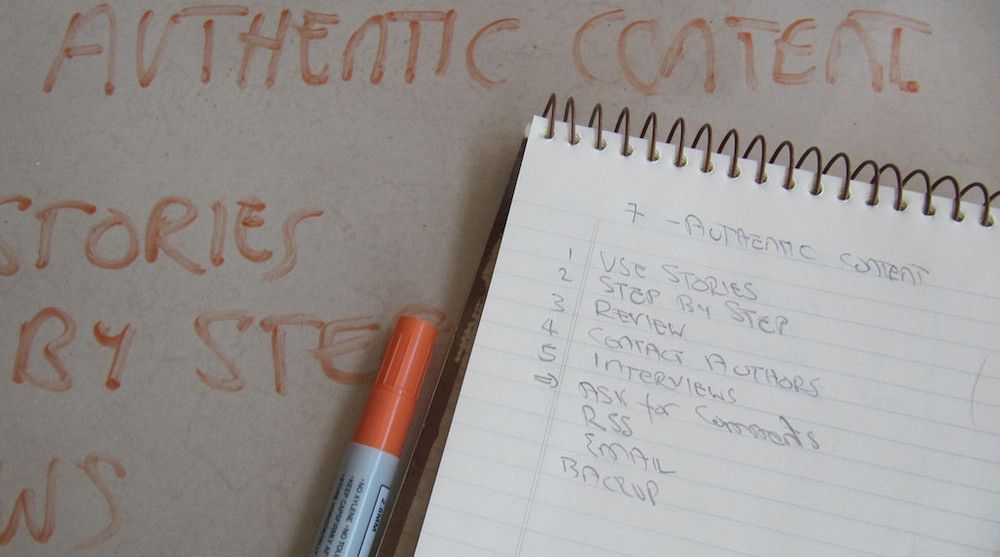 AUTHENTIC CONTENT
STORIES
BY STEP
WS
7 - AUTHENTIC CONTENT
1 USE STORIES
2 STEP BY STEP
3 REVIEW
4 CONTACT AUTHORS
5 INTERVIEWS
⇒ ASK for Comments
RSS
EMAIL
BACKUP
•NO XYLENE •NO TOLU
•KEEP CAP